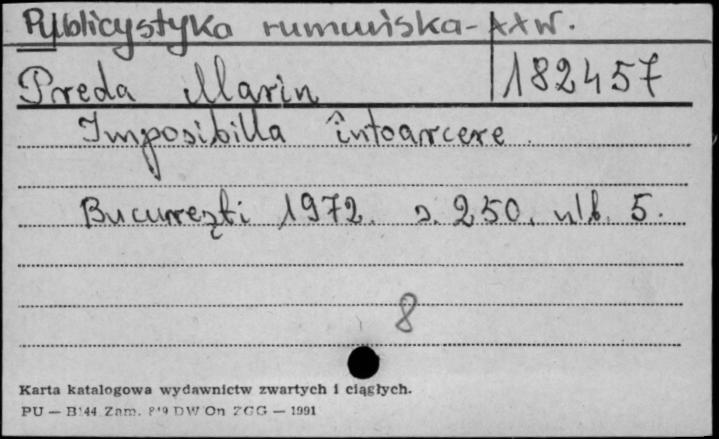 Publicystyka rumuńska-XXw.
Preda Marin 182457
Imposibilla întoarcere.
București 1972. s. 250. nlb. 5.
8
Karta katalogowa wydawnictw zwartych i ciągłych.
PU — B144 Zam. DW On ZGG — 1991